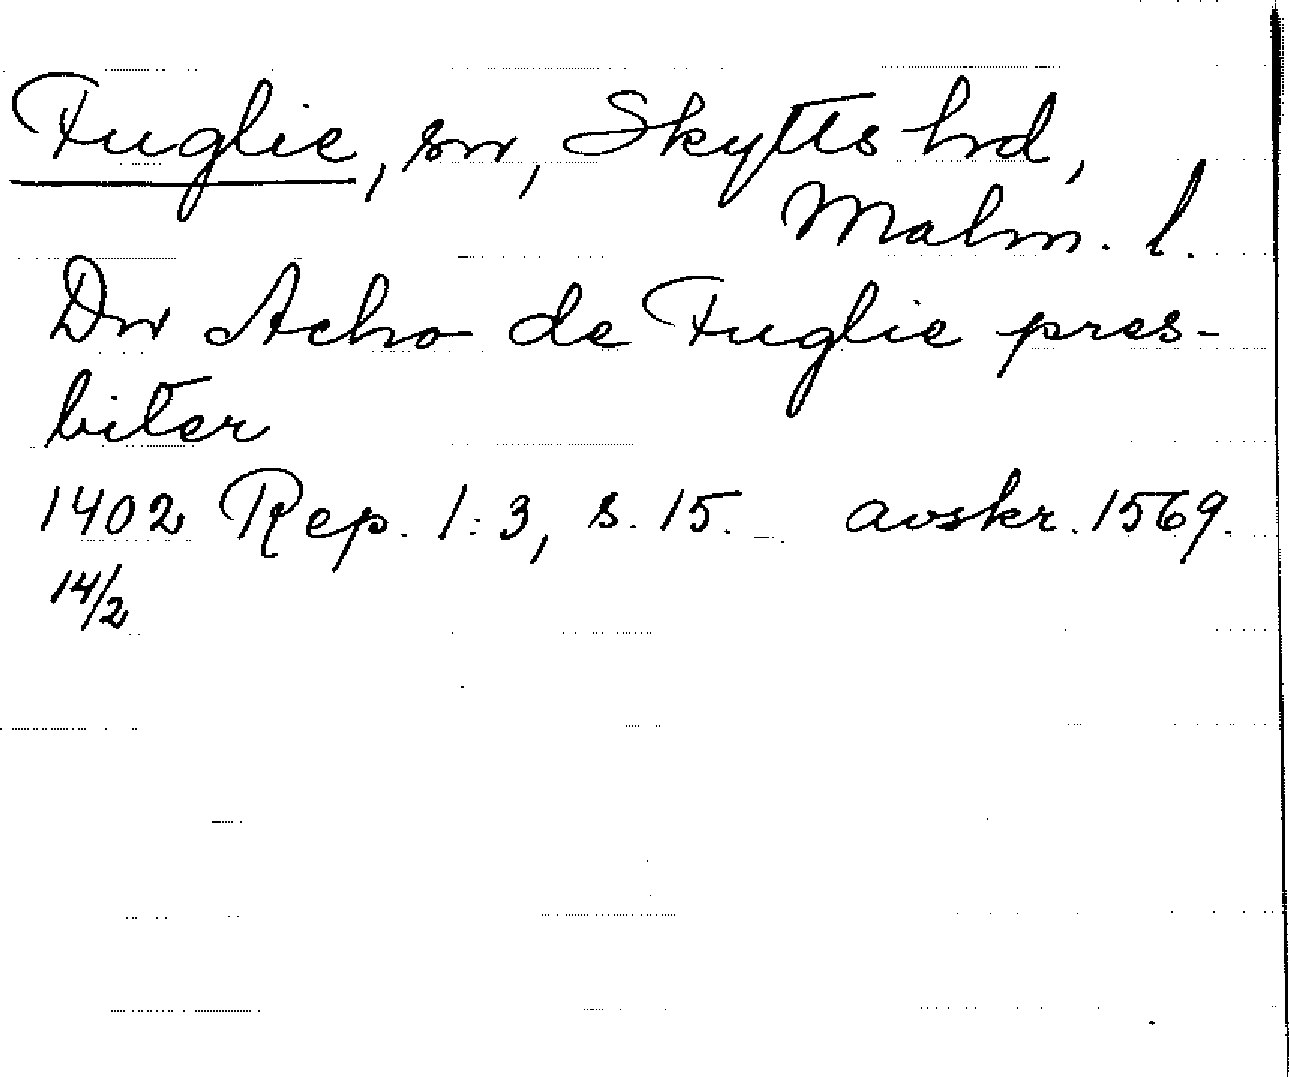 Fuglie, sn, Skytts hd,
Malm. l.
Dn Acho de Fuglie pres-
biter
1402 Rep. 1:3, s. 15. avskr. 1569.
14/2